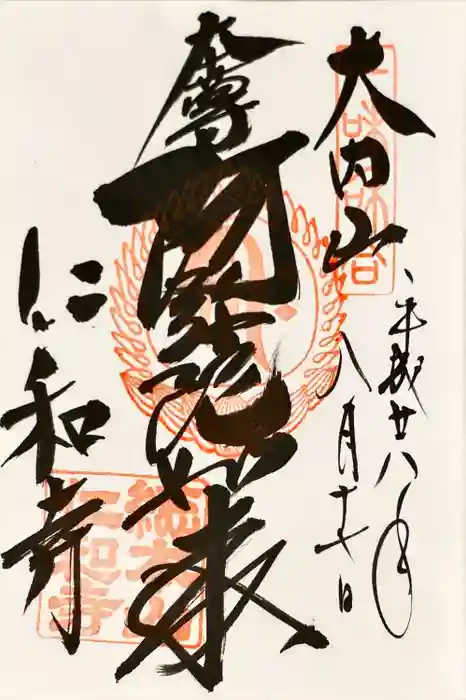 大内山
平成廿八年
八月十七日
本尊
阿弥陀如来
仁和寺
總本山
仁和寺